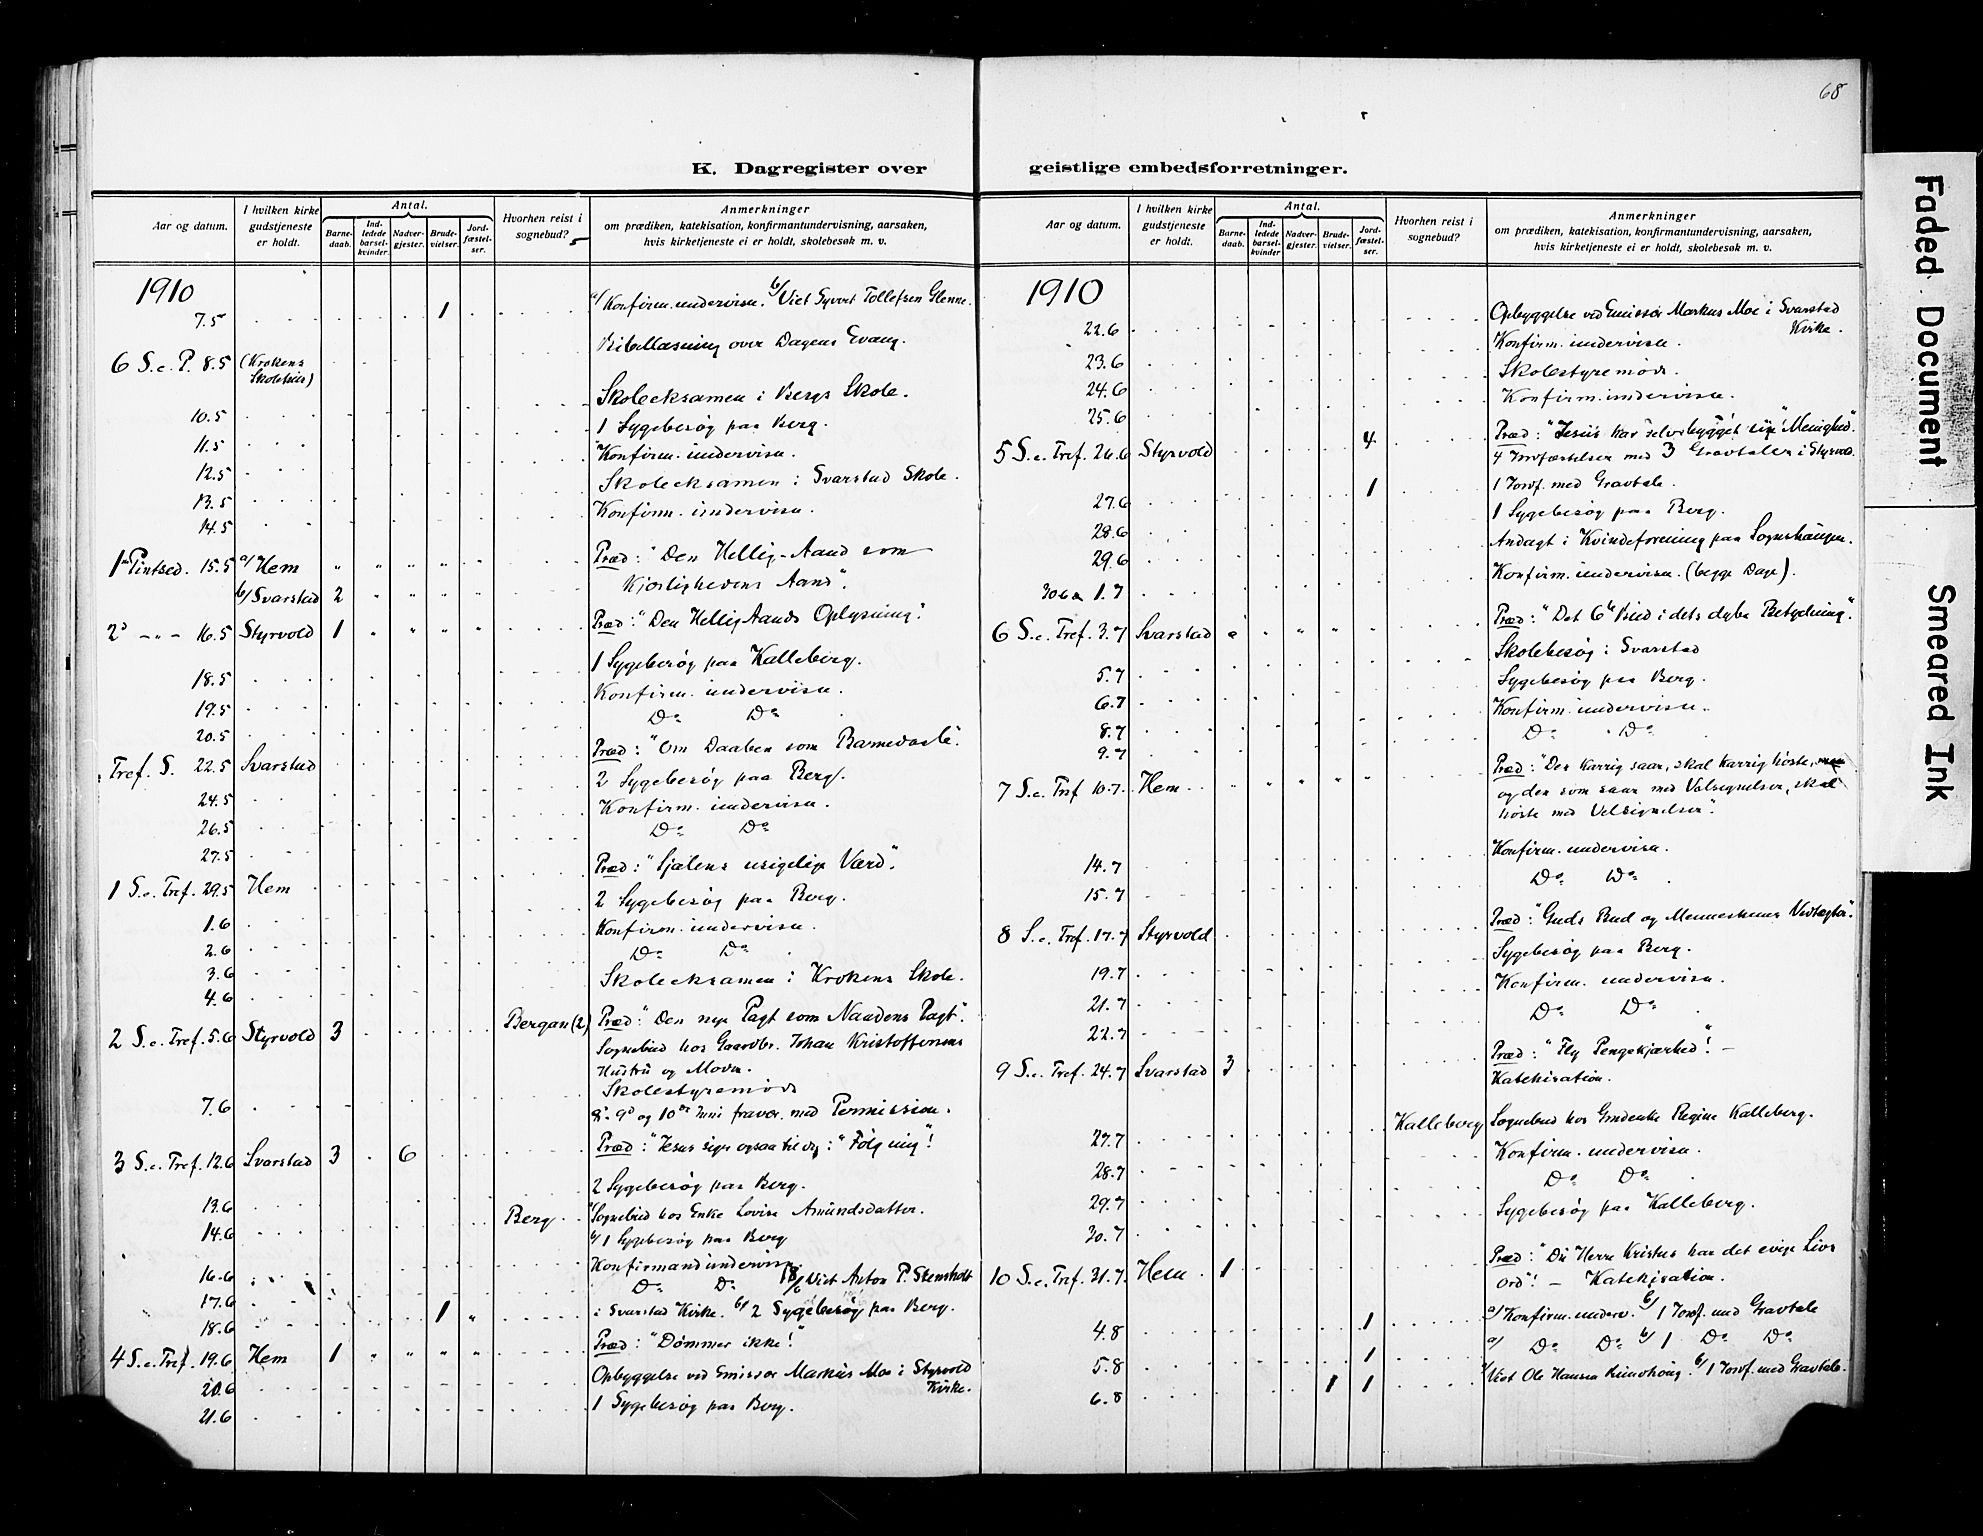 68
K. Dagregister over geistlige embedsforretninger.
Aar og datum. | I hvilken kirke gudstjeneste er holdt. | Antal. | Barnedaab. | Indledede barselkvinder. | Nadvergjester. | Brudevielser. | Jordfæstelser. | Hvorhen reist i sognebud? | Anmerkninger om prædiken, katekisation, konfirmantundervisning, aarsaken, hvis kirketjeneste ei er holdt, skolebesøk m. v.
1910
7.5 | 1 | a/ Konfirm. undervisn. b/ Viet Syvert Tollefsen Glenne.
6 S. e. P. 8.5 | (Krokens Skolehus) | Bibellæsning over Dagens Evang.
10.5 | Skoleeksamen i Bergs Skole.
11.5 | 1 Sygebesøg paa Berg.
12.5 | Konfirm. undervisn.
13.5 | Skoleeksamen i Svarstad Skole.
14.5 | Konfirm. undervisn.
1ste Pintsed. 15.5 | a/ Hem | " " " " " | Præd: "Den Hellig-Aand som
b/ Svarstad | 2 " " " " | Kjærlighedens Aand".
2d -"- 16.5 | Styrvold | 1 " " " " | Præd: "Den Hellig Aands Oplysning".
18.5 | 1 Sygebesøg paa Kalleberg.
19.5 | Konfirm. undervisn.
20.5 | Do Do
Tref. S. 22.5 | Svarstad | Præd: "Om Daaben som Barnedaab".
24.5 | 2 Sygebesøg paa Berg.
26.5 | Konfirm. undervisn.
27.5 | Do Do
1 S. e. Tref. 29.5 | Hem | Præd: "Sjælens usigelige Værd".
1.6 | 2 Sygebesøg paa Berg.
2.6 | Konfirm. undervisn.
3.6 | Do Do
4.6 | Skoleeksamen i Krokens Skole.
2 S. e. Tref. 5.6 | Styrvold | 3 | Bergan (2) | Præd: "Den nye Pagt som Naadens Pagt".
Sognebud hos Gaardbr. Johan Kristoffersens
Hustru og Moder.
7.6 | Skolestyremøde
8de 9d og 10de Juni fravær. med Permission.
3 S. e. Tref. 12.6 | Svarstad | 3 | 6 | Præd: "Jesus siger ogsaa til dig: "Følg mig"!
13.6 | 2 Sygebesøg paa Berg.
14.6 | Berg | a/ Sognebud hos Enke Lovise Amundsdatter.
b/ 1 Sygebesøg paa Berg
16.6 | Konfirmandundervisn.
17.6 | Do Do 18/6 Viet Anton P. Stensholt
18.6 | 1 " | i Svarstad Kirke. b/ 2 Sygebesøg paa Berg.
4 S. e. Tref. 19.6 | Hem | 1 " " " " | Præd: "Dømmer ikke!"
20.6 | Opbyggelse ved Emissær Markus Moe i Styrvold Kirke.
21.6 | 1 Sygebesøg paa Berg.
Aar og datum. | I hvilken kirke gudstjeneste er holdt. | Antal. | Barnedaab. | Indledede barselkvinder. | Nadvergjester. | Brudevielser. | Jordfæstelser. | Hvorhen reist i sognebud? | Anmerkninger om prædiken, katekisation, konfirmantundervisning, aarsaken, hvis kirketjeneste ei er holdt, skolebesøk m. v.
1910
22.6 | Opbyggelse ved Emissær Markus Moe i Svarstad Kirke.
23.6 | Konfirm. undervisn.
24.6 | Skolestyremøde.
25.6 | Konfirm. undervisn.
5 S. e. Tref. 26.6 | Styrvold | 4 | Præd: "Jesus har selv bygget sin Menighed".
4 Jordfæstelser med 3 Gravtaler i Styrvold.
27.6 | 1 | 1 Jordf. med Gravtale.
28.6 | 1 Sygebesøg paa Berg.
29.6 | Andagt i Kvindeforening paa Sognshaugen.
30.6 & 1.7 | Konfirm. undervisn. (begge Dage).
6 S. e. Tref. 3.7 | Svarstad | Præd: "Det 6te Bud i dets dybe Betydning".
5.7 | Skolebesøg i Svarstad
6.7 | Sygebesøg paa Berg.
8.7 | Konfirm. undervisn.
9.7 | Do Do
7 S. e. Tref 10.7. | Hem | Præd: "Den karrig saar, skal karrig høste,
og den som saar med Velsignelser, skal
høste med Velsignelser".
14.7 | Konfirm. undervisn.
15.7 | Do Do
8 S. e. Tref. 17.7 | Styrvold | Præd: "Guds Bud og Menneskenes Vedtægter".
19.7 | Sygebesøg paa Berg.
21.7 | Konfirm. undervisn.
22.7 | Do Do
9 S. e. Tref. 24.7 | Svarstad | 3 | Præd: "Fly Pengekjærhed"! –
Katekisation.
27.7 | Kalleberg | Sognebud hos Regine Kalleberg.
28.7 | Konfirm. undervisn.
29.7 | Do Do
30.7 | Sygebesøg paa Kalleberg.
10 S. e. Tref. 31.7. | Hem | 1 | Præd: "Du Herre Kristus har det evige Livs
Ord"! – Katekisation.
4.8 | 1 | a/ Konfirm. underv. b/ 1 Jordf. med Gravtale
5.8 | 1 | a/ Do Do b/ 1 Do Do
6.8 | 1 1 | a/ Viet Ole Hansen b/ 1 Jordf. med Gravtale.
Faded Document
Smeared Ink